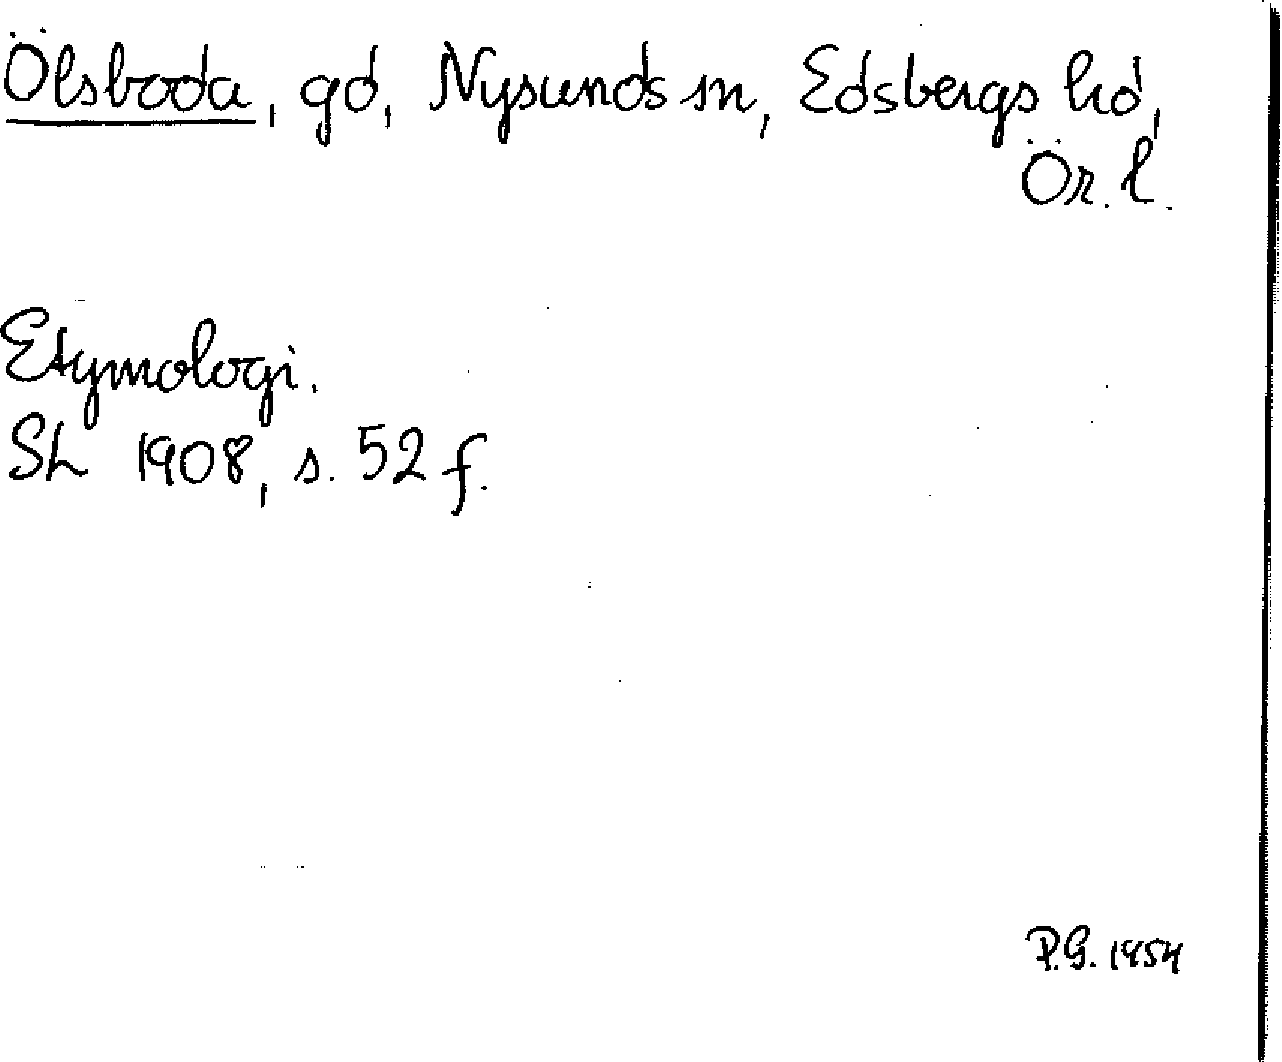 Ölsboda, gd, Nysunds sn, Edsbergs hd,
Ör. l.
Etymologi.
SL 1908, s. 52 f.
P.G. 1954